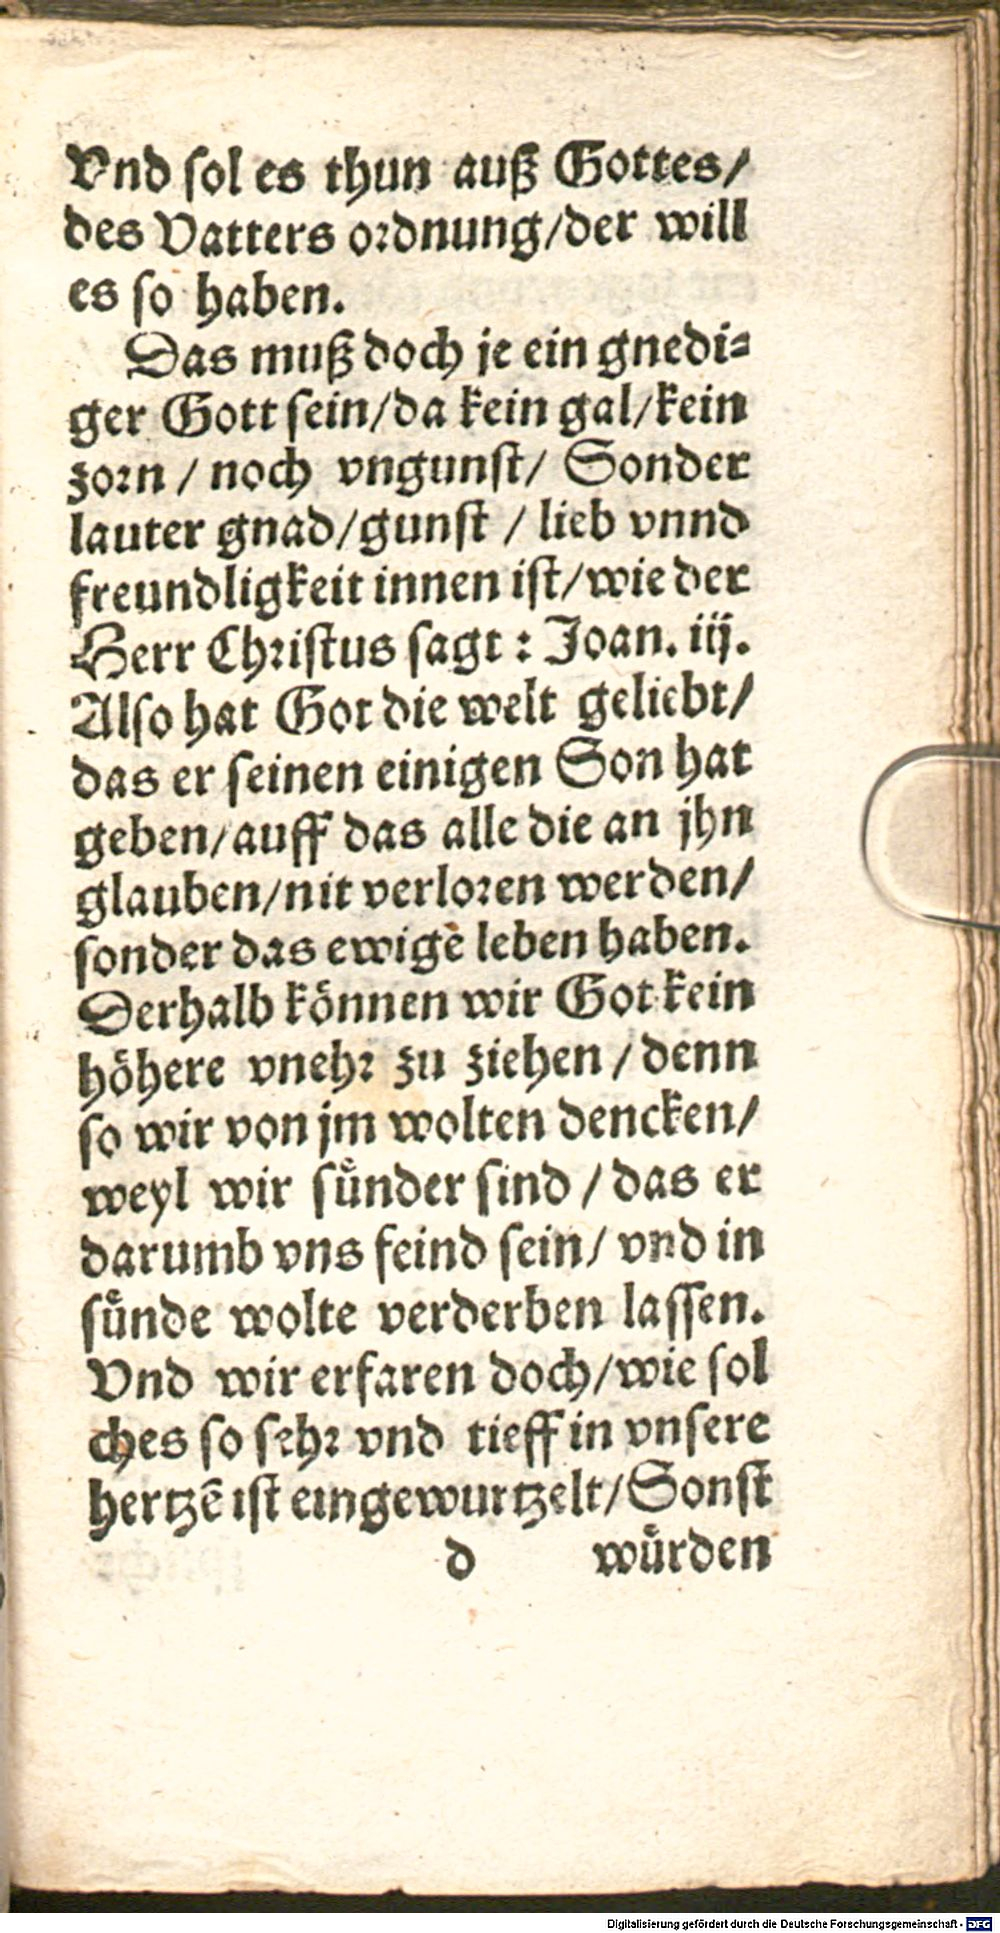 Vnd sol es thun auß Gottes/
des Vatters ordnung/der will
es so haben.
Das muß doch je ein gnedi-
ger Gott sein/da kein gal/kein
zorn / noch vngunst/ Sonder
lauter gnad/gunst / lieb vnnd
freundligkeit innen ist/wie der
Herr Christus sagt : Joan. iij.
Also hat Got die welt geliebt/
das er seinen einigen Son hat
geben/auff das alle die an jhn
glauben/nit verloren werden/
sonder das ewigē leben haben.
Derhalb können wir Got kein
höhere vnehr zu ziehen / denn
so wir von jm wolten dencken/
weyl wir sünder sind / das er
darumb vns feind sein/ vnd in
sünde wolte verderben lassen.
Vnd wir erfaren doch/wie sol
ches so sehr vnd tieff in vnsere
hertzē ist eingewurtzelt/Sonst
d würden
Digitalisierung gefördert durch die Deutsche Forschungsgemeinschaft - DFG